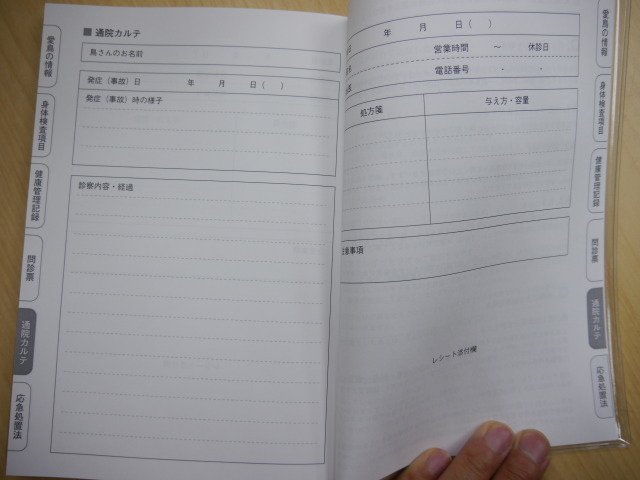 愛鳥の情報
身体検査項目
健康管理記録
問診票
通院カルテ
応急処置法
■ 通院カルテ
鳥さんのお名前
発症（事故）日　年　月　日（　）
発症（事故）時の様子
診察内容・経過
年　月　日（　）
営業時間　～　休診日
電話番号　-　-
処方箋　与え方・容量
事項
レシート添付欄
愛鳥の情報
身体検査項目
健康管理記録
問診票
通院カルテ
応急処置法